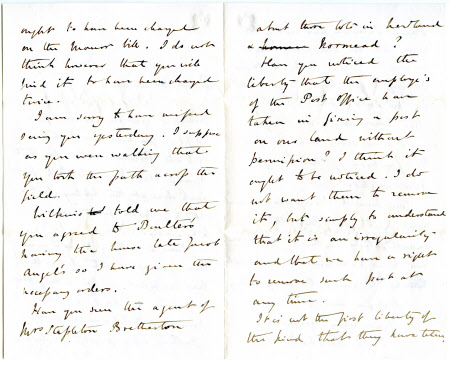 ought to have been charged
on the Manor bill. I do not
think however that you will
find it to have been charged
twice.
I am sorry to have missed
seeing you yesterday. I suppose
as you were walking that
you took the path across the
field.
Wilkins told me that
you agreed to Butler's
having the house late Jacob
Angel's so I have given the
necessary orders.
Have you seen the agent of
Mrs Stapleton Bretherton
about those lots in
& Normead?
Have you noticed the
liberty that the employe's
of the Post Office have
taken in fixing a post
on our land without
permission? I think it
ought to be noticed. I do
not want them to remove
it, but simply to understand
that it is an irregularity
and that we have a right
to remove such post at
any time.
It is not the first liberty of
this kind that they have taken